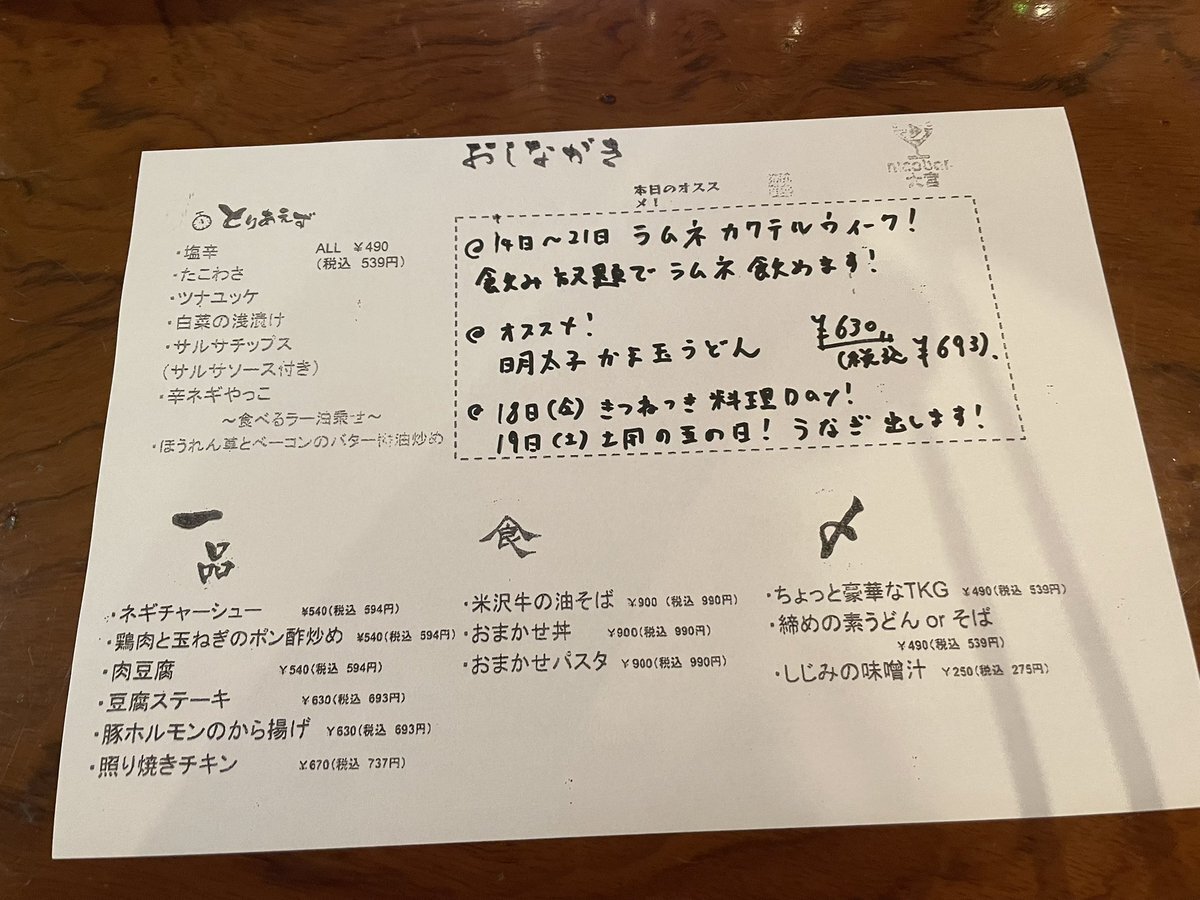 おしながき
nicobar
大宮
とりあえず
・塩辛 ALL ￥490
(税込 539円)
・たこわさ
・ツナユッケ
・白菜の浅漬け
・サルサチップス
(サルサソース付き)
・辛ネギやっこ
～食べるラー油乗せ～
・ほうれん草とベーコンのバター醤油炒め
本日のオスス
メ！
@ 14日～21日 ラムネ カクテルウィーク！
飲み放題で ラムネ 飲めます！
@ オススメ！
明太子 かま玉うどん
￥630
(税込 ￥693)
@ 18日(金) きつねつき 料理Day！
19日(土) 土用の丑の日！ うなぎ 出します！
一品
・ネギチャーシュー ￥540(税込 594円)
・鶏肉と玉ねぎのポン酢炒め ￥540(税込 594円)
・肉豆腐 ￥540(税込 594円)
・豆腐ステーキ ￥630(税込 693円)
・豚ホルモンのから揚げ ￥630(税込 693円)
・照り焼きチキン ￥670(税込 737円)
食
・米沢牛の油そば ￥900 (税込 990円)
・おまかせ丼 ￥900(税込 990円)
・おまかせパスタ ￥900(税込 990円)
〆
・ちょっと豪華なTKG ￥490(税込 539円)
・締めの素うどん or そば
￥490(税込 539円)
・しじみの味噌汁 ￥250(税込 275円)